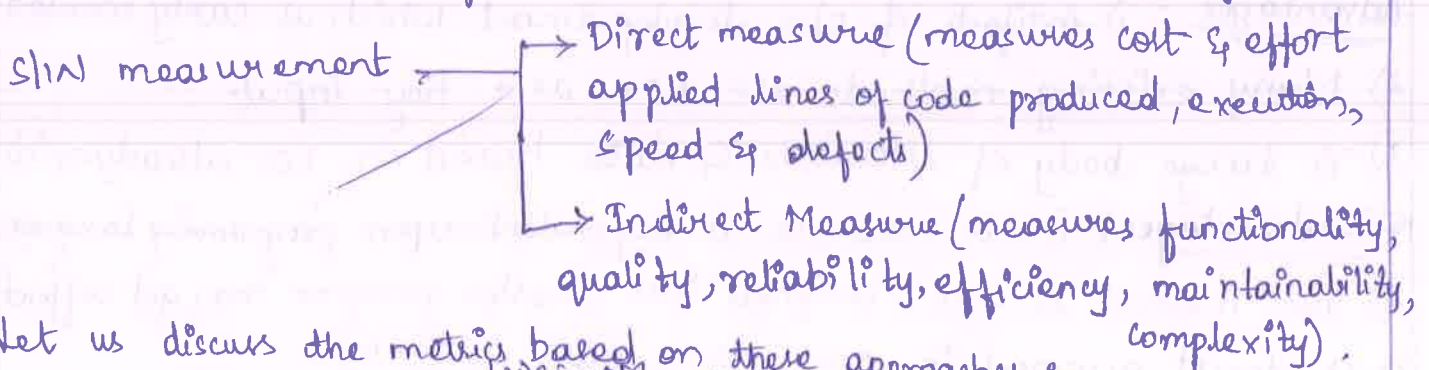 → Direct measure (measures cost & effort
S/W measurement
applied lines of code produced, execution,
speed & defects)
→ Indirect Measure (measures functionality,
quality, reliability, efficiency, maintainability,
complexity).
Let us discuss the metrics based on these